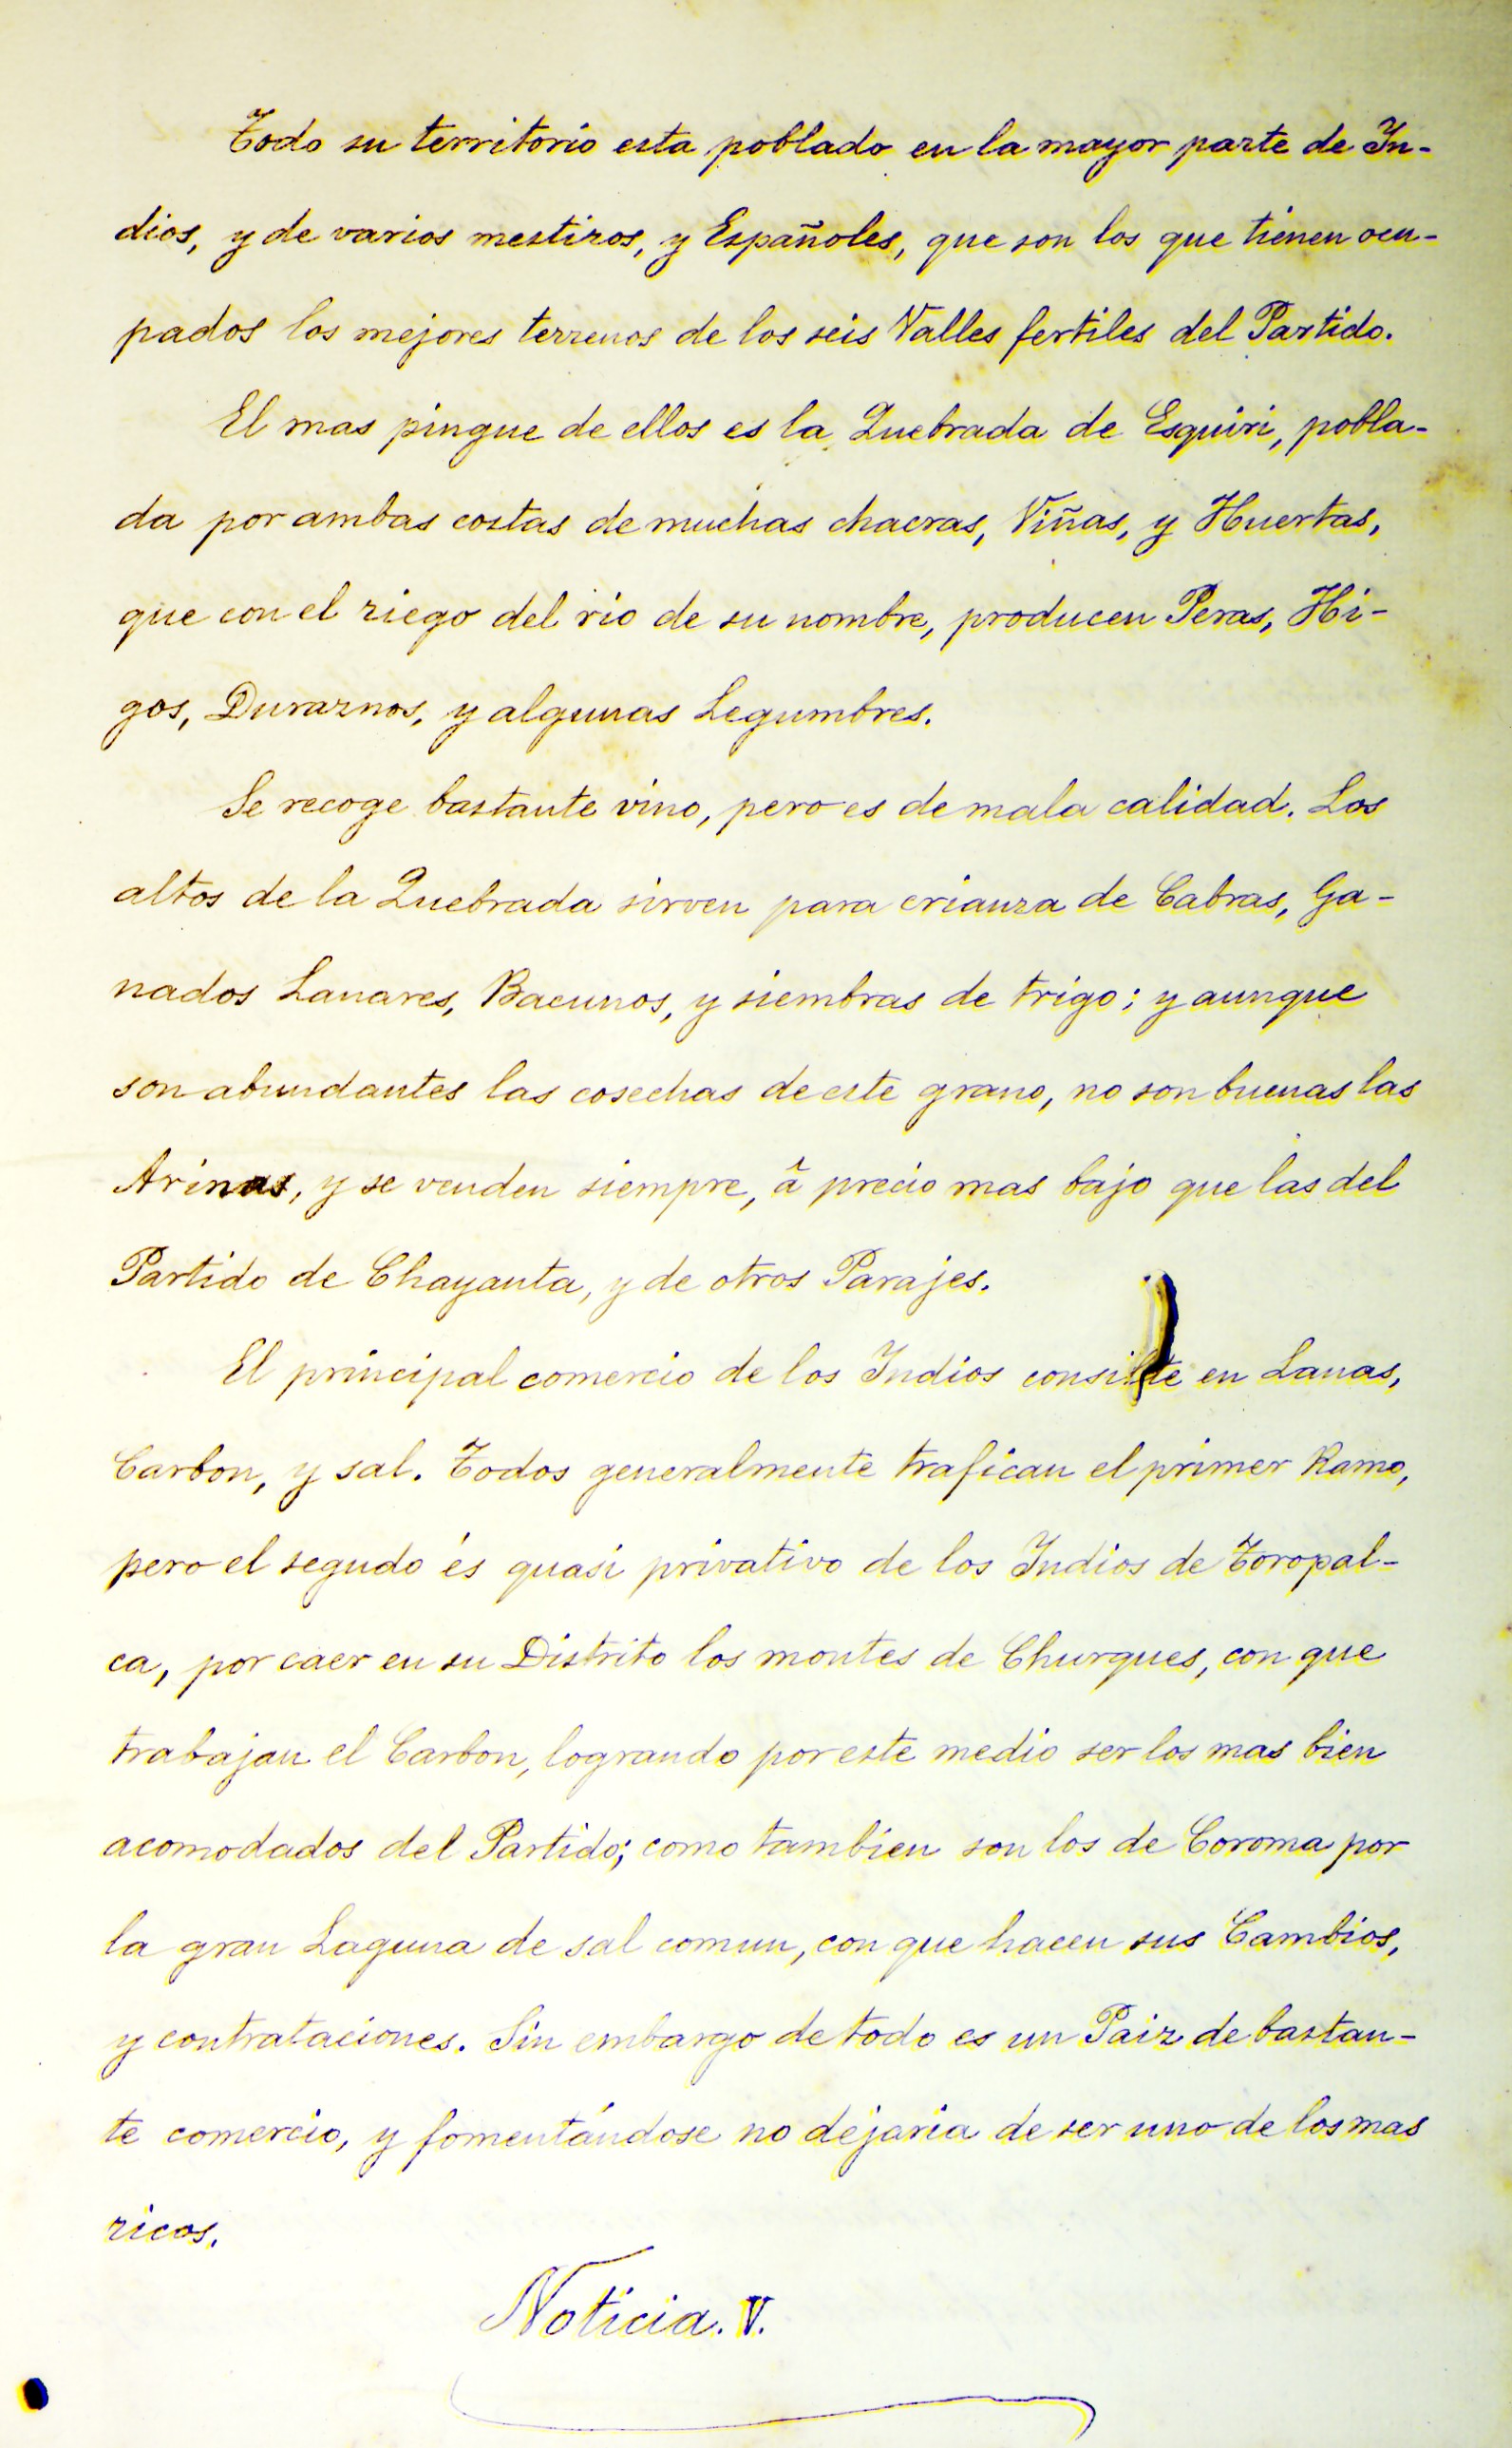 Todo su territorio esta poblado en la mayor parte de In-
dios, y de varios mestizos, y Españoles, que son los que tienen ocu-
pados los mejores terrenos de los seis Valles fertiles del Partido.
El mas pingue de ellos es la Quebrada de Esquiri, pobla-
da por ambas costas de muchas chacras, Viñas, y Huertas,
que con el riego del rio de su nombre, producen Peras, Hi-
gos, Duraznos, y algunas Legumbres.
Se recoge bastante vino, pero es de mala calidad. Los
altos de la Quebrada sirven para crianza de Cabras, Ga-
nados Lanares, Bacunos, y siembras de trigo; y aunque
son abundantes las cosechas de este grano, no son buenas las
Arinas, y se venden siempre, â precio mas bajo que las del
Partido de Chayanta, y de otros Parajes.
El principal comercio de los Indios consiste en Lanas,
Carbon, y sal. Todos generalmente trafican el primer Ramo,
pero el segudo és quasi privativo de los Indios de Toropal-
ca, por caer en su Distrito los montes de Churques, con que
trabajan el Carbon, logrando por este medio ser los mas bien
acomodados del Partido; como tambien son los de Coroma por
la gran Laguna de sal comun, con que hacen sus Cambios,
y contrataciones. Sin embargo de todo es un Paiz de bastan-
te comercio, y fomentándose no dejaria de ser uno de los mas
ricos.
Noticia. V.